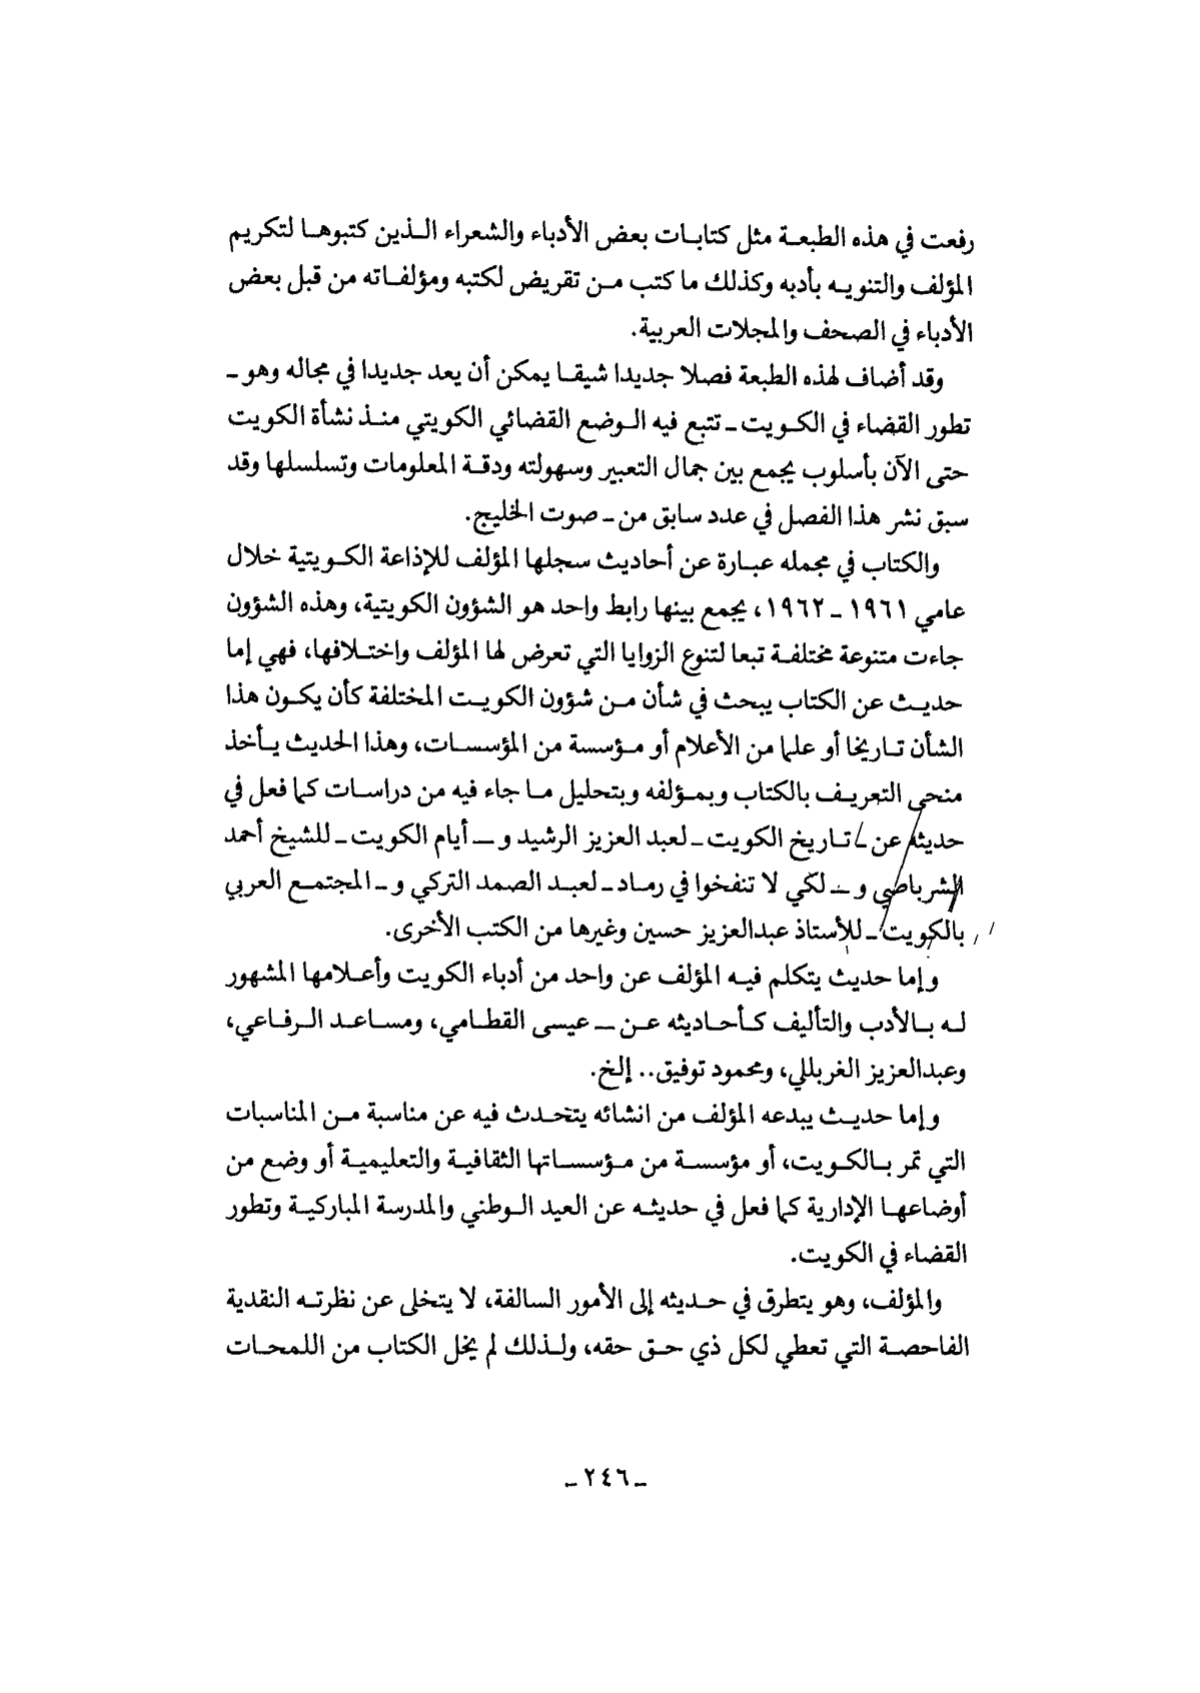 رفعت في هذه الطبعة مثل كتابات بعض الأدباء والشعراء الذين كتبوها لتكريم
المؤلف والتنويه بأدبه وكذلك ما كتب من تقريض لكتبه ومؤلفاته من قبل بعض
الأدباء في الصحف والمجلات العربية.
وقد أضاف لهذه الطبعة فصلا جديدا شيقا يمكن أن يعد جديدا في مجاله وهو ـ
تطور القضاء في الكويت ـ تتبع فيه الوضع القضائي الكويتي منذ نشأة الكويت
حتى الآن بأسلوب يجمع بين جمال التعبير وسهولته ودقة المعلومات وتسلسلها وقد
سبق نشر هذا الفصل في عدد سابق من ـ صوت الخليج.
والكتاب في مجمله عبارة عن أحاديث سجلها المؤلف للإذاعة الكويتية خلال
عامي ١٩٦١ ـ ١٩٦٢، يجمع بينها رابط واحد هو الشؤون الكويتية، وهذه الشؤون
جاءت متنوعة مختلفة تبعا لتنوع الزوايا التي تعرض لها المؤلف واختلافها، فهي إما
حديث عن الكتاب يبحث في شأن من شؤون الكويت المختلفة كأن يكون هذا
الشأن تاريخا أو علما من الأعلام أو مؤسسة من المؤسسات، وهذا الحديث يأخذ
منحى التعريف بالكتاب وبمؤلفه وبتحليل ما جاء فيه من دراسات كما فعل في
حديثه عن ـ تاريخ الكويت ـ لعبد العزيز الرشيد و ـ أيام الكويت ـ للشيخ أحمد
الشرباصي و ـ لكي لا تنفخوا في رماد ـ لعبد الصمد التركي و ـ المجتمع العربي
بالكويت ـ للأستاذ عبدالعزيز حسين وغيرها من الكتب الأخرى.
وإما حديث يتكلم فيه المؤلف عن واحد من أدباء الكويت وأعلامها المشهور
له بالأدب والتأليف كأحاديثه عن ـ عيسى القطامي، ومساعد الرفاعي،
وعبدالعزيز الغربللي، ومحمود توفيق.. إلخ.
وإما حديث يبدعه المؤلف من انشائه يتحدث فيه عن مناسبة من المناسبات
التي تمر بالكويت، أو مؤسسة من مؤسساتها الثقافية والتعليمية أو وضع من
أوضاعها الإدارية كما فعل في حديثه عن العيد الوطني والمدرسة المباركية وتطور
القضاء في الكويت.
والمؤلف، وهو يتطرق في حديثه إلى الأمور السالفة، لا يتخلى عن نظرته النقدية
الفاحصة التي تعطي لكل ذي حق حقه، ولذلك لم يخل الكتاب من اللمحات
ـ ٢٤٦ ـ